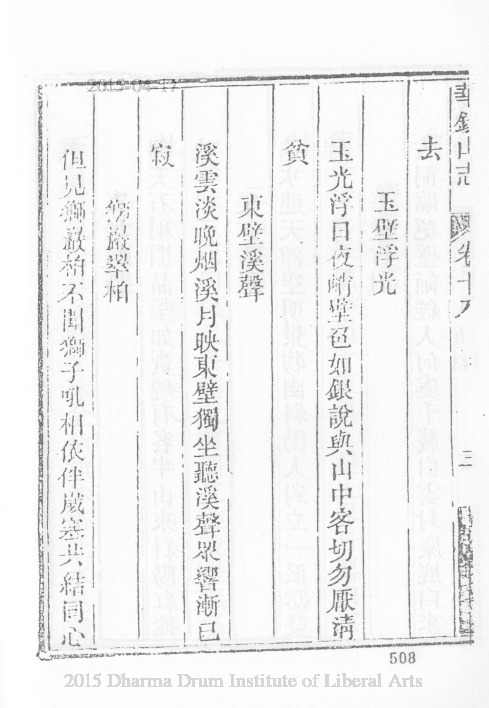 華銀山志 卷十八 三
去
玉壁浮光
玉光浮日夜峭壁色如銀說與山中客切勿厭清
貧
東壁溪聲
溪雲淡晚烟溪月映東壁獨坐聽溪聲眾響漸已
寂
巖翠柏
但見獅巖柏不聞獅子吼相依伴歲寒共結同心
508
2015 Dharma Drum Institute of Liberal Arts